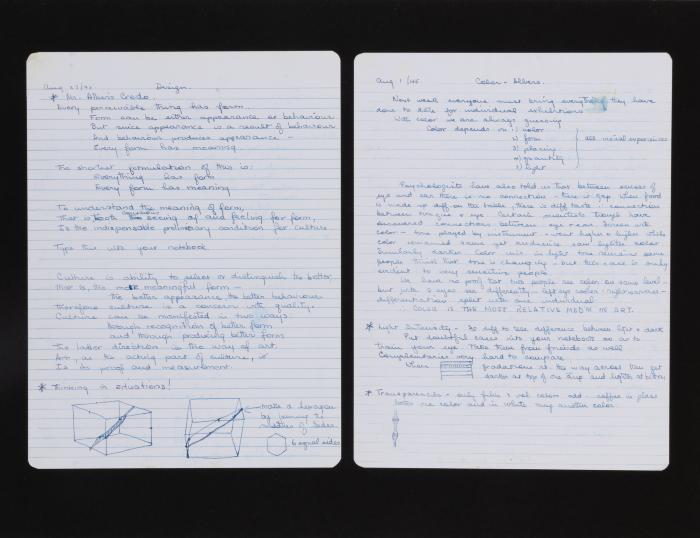 Design.
* Mr. Albers Credo.
Every perceivable thing has form.
Form can be either appearance or behaviour
But since appearance is a result of behaviour
And behaviour produces appearance -
Every form has meaning.
The shortest formulation of this is:
Everything has form
Every form has meaning
To understand the meaning of form,
That is conscious seeing of and feeling for form,
Is the indispensable preliminary condition for culture
Type this into your notebook.
Culture is ability to select or distinguish the better,
that is, the more meaningful form -
the better appearance, the better behaviour.
therefore culture is a concern with quality.
Culture can be manifested in two ways
through recognition of better form
and through producing better form
The latter direction is the way of art.
Art, as the acting part of culture, is
Its proof and measurement.
* Thinking in situations!
make a hexagon
by joining the
middles of sides
6 equal sides
Aug 1/45 Color - Albers.
Next week everyone must bring everything they have
done to date for individual exhibitions
With color we are always guessing
Color depends on 1) color
2) form
3) placing
4) quantity
5) light
Psychologists have also told us that between senses of
eye and ear there is no connection - there is gap. When food
between tongue & eye. Certain scientists though have
discovered connections between eye & ear.
color - tone played by instrument - went higher & higher while
color remained same yet audience saw lighter color
Similarly darker color
people think that tone is changing - but this case is only
evident to very sensitive people.
We have no proof that two people see color on same level -
differentiation split with one individual
COLOR IS THE MOST RELATIVE MEDIUM IN ART.
* Light Intensity - to see difference between light & dark
Put doubtful cases into your notebook so as to
train your eye. Take them from friends as well
Complementaries very hard to compare
When gradations all the way across then get
darks at top of one strip and lights at bottom
* Transparencies - only filters & vol. colors add - coffee in glass
looks one color and in white mug another color